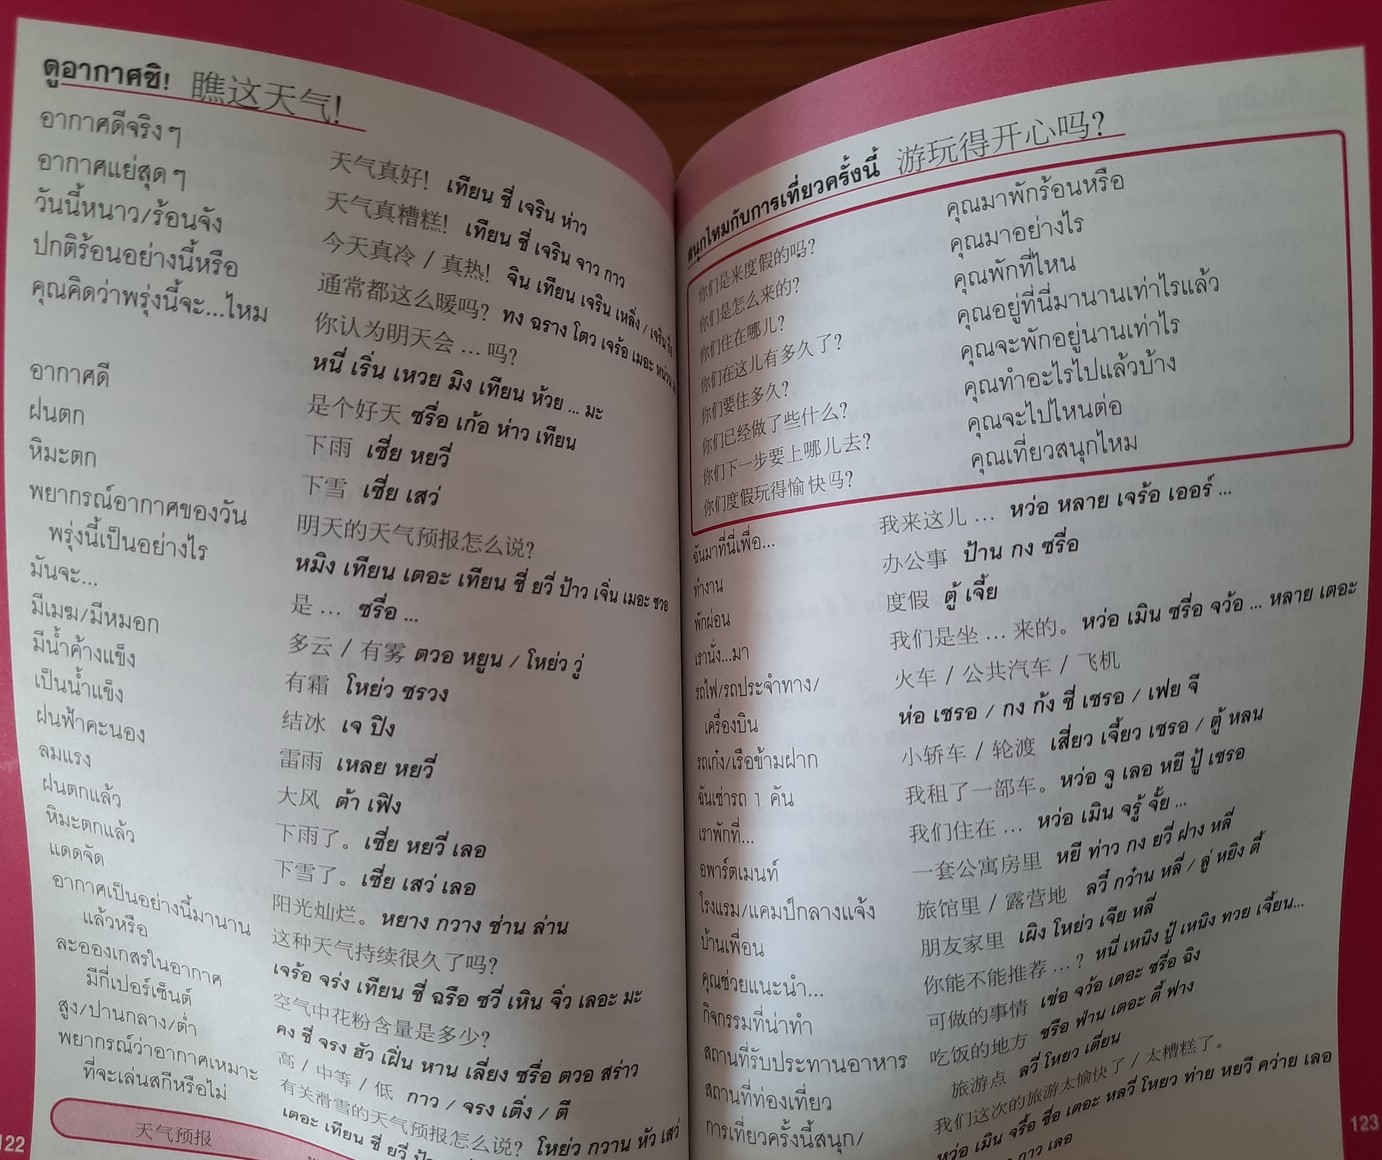 ดูอากาศซิ! 瞧这天气!
อากาศดีจริงๆ 天气真好! เทียน ชี่ เจริน ห่าว
อากาศแย่สุดๆ 天气真糟糕! เทียน ชี่ เจริน จาว กาว
วันนี้หนาว/ร้อนจัง 今天真冷 / 真热! จิน เทียน เจริน เหลิ่ง / เจริน
ปกติร้อนอย่างนี้หรือ 通常都这么暖吗? ทง ฉราง โตว เจร้อ เมอะ
คุณคิดว่าพรุ่งนี้จะ...ไหม 你认为明天会 ... 吗?
หนี่ เริ่น เหวย มิง เทียน ห้วย ... มะ
อากาศดี 是个好天 ซรื่อ เก้อ ห่าว เทียน
ฝนตก 下雨 เซี่ย หยวี่
หิมะตก 下雪 เซี่ย เสว่
พยากรณ์อากาศของวัน 明天的天气预报怎么说?
พรุ่งนี้เป็นอย่างไร หมิง เทียน เตอะ เทียน ชี่ ยวี่ ป้าว เจิ่น เมอะ ซวอ
มันจะ... 是 ... ซรื่อ ...
มีเมฆ/มีหมอก 多云 / 有雾 ตวอ หยูน / โหย่ว วู่
มีน้ำค้างแข็ง 有霜 โหย่ว ซรวง
เป็นน้ำแข็ง 结冰 เจ ปิง
ฝนฟ้าคะนอง 雷雨 เหลย หยวี่
ลมแรง 大风 ต้า เฟิง
ฝนตกแล้ว 下雨了。 เซี่ย หยวี่ เลอ
หิมะตกแล้ว 下雪了。 เซี่ย เสว่ เลอ
แดดจัด 阳光灿烂。 หยาง กวาง ช่าน ล่าน
อากาศเป็นอย่างนี้มานาน 这种天气持续很久了吗?
แล้วหรือ เจร้อ จรง่ เทียน ชี่ ฉรือ ซวี่ เหิน จิ่ว เลอะ มะ
ละอองเกสรในอากาศ 空气中花粉含量是多少?
มีกี่เปอร์เซ็นต์ คง ชี่ จรง ฮัว เฝิ่น หาน เลี่ยง ซรื่อ ตวอ สร่าว
สูง/ปานกลาง/ต่ำ 高 / 中等 / 低 กาว / จรง เติ่ง / ตี
พยากรณ์ว่าอากาศเหมาะ 有关滑雪的天气预报怎么说? โหย่ว กวาน หัว เสว่
ที่จะเล่นสกีหรือไม่ เตอะ เทียน ชี่ ยวี่
天气预报
122
สนุกไหมกับการเที่ยวครั้งนี้ 游玩得开心吗?
你们是来度假的吗? คุณมาพักร้อนหรือ
你们是怎么来的? คุณมาอย่างไร
你们住在哪儿? คุณพักที่ไหน
你们在这儿有多久了? คุณอยู่ที่นี่มานานเท่าไรแล้ว
你们要住多久? คุณจะพักอยู่นานเท่าไร
你们已经做了些什么? คุณทำอะไรไปแล้วบ้าง
你们下一步要上哪儿去? คุณจะไปไหนต่อ
你们度假玩得愉快吗? คุณเที่ยวสนุกไหม
ฉันมาที่นี่เพื่อ... 我来这儿 ... หว่อ หลาย เจร้อ เออร์ ...
ทำงาน 办公事 ป้าน กง ซรื่อ
พักผ่อน 度假 ตู้ เจี้ย
เรานั่ง...มา 我们是坐 ... 来的。 หว่อ เมิน ซรื่อ จว้อ ... หลาย เตอะ
รถไฟ/รถประจำทาง/ 火车 / 公共汽车 / 飞机
เครื่องบิน ห่อ เชรอ / กง ก้ง ชี่ เชรอ / เฟย จี
รถเก๋ง/เรือข้ามฝาก 小轿车 / 轮渡 เสี่ยว เจี้ยว เชรอ / ตู้ หลน
ฉันเช่ารถ 1 คัน 我租了一部车。 หว่อ จู เลอ หยี ปู้ เชรอ
เราพักที่... 我们住在 ... หว่อ เมิน จรู้ จั้ย ...
อพาร์ตเมนท์ 一套公寓房里 หยี ท่าว กง ยวี่ ฝาง หลี่
โรงแรม/แคมป์กลางแจ้ง 旅馆里 / 露营地 ลวี่ กว๋าน หลี่ / ลู่ หยิง ตี้
บ้านเพื่อน 朋友家里 เผิง โหย่ว เจีย หลี่
คุณช่วยแนะนำ... 你能不能推荐 ...? หนี่ เหนิง ปู้ เหนิง ทวย เจี้ยน...
กิจกรรมที่น่าทำ 可做的事情 เข่อ จว้อ เตอะ ซรื่อ ฉิง
สถานที่รับประทานอาหาร 吃饭的地方 ชรือ ฟ่าน เตอะ ตี้ ฟาง
สถานที่ท่องเที่ยว 旅游点 ลวี่ โหยว เตี่ยน
การเที่ยวครั้งนี้สนุก/ 我们这次的旅游太愉快了 / 太糟糕了。
หว่อ เมิน จรื้อ ชื่อ เตอะ หลวี่ โหยว ท่าย หยวี คว่าย เลอ
กาว เลอ
123